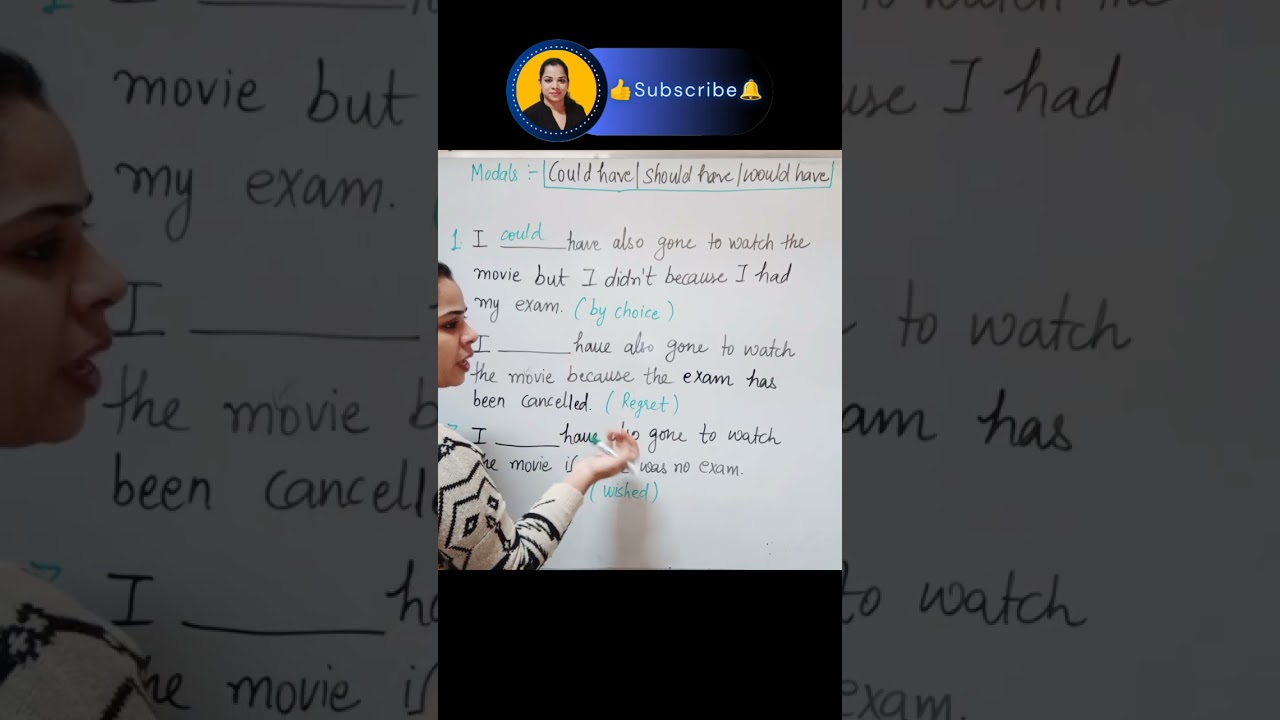 👍Subscribe🔔
Modals :- Could have | should have | would have
1. I could have also gone to watch the
movie but I didn't because I had
my exam. (by choice)
I ______ have also gone to watch
the movie because the exam has
been cancelled. (Regret)
I ______ have also gone to watch
movie was no exam.
(wished)